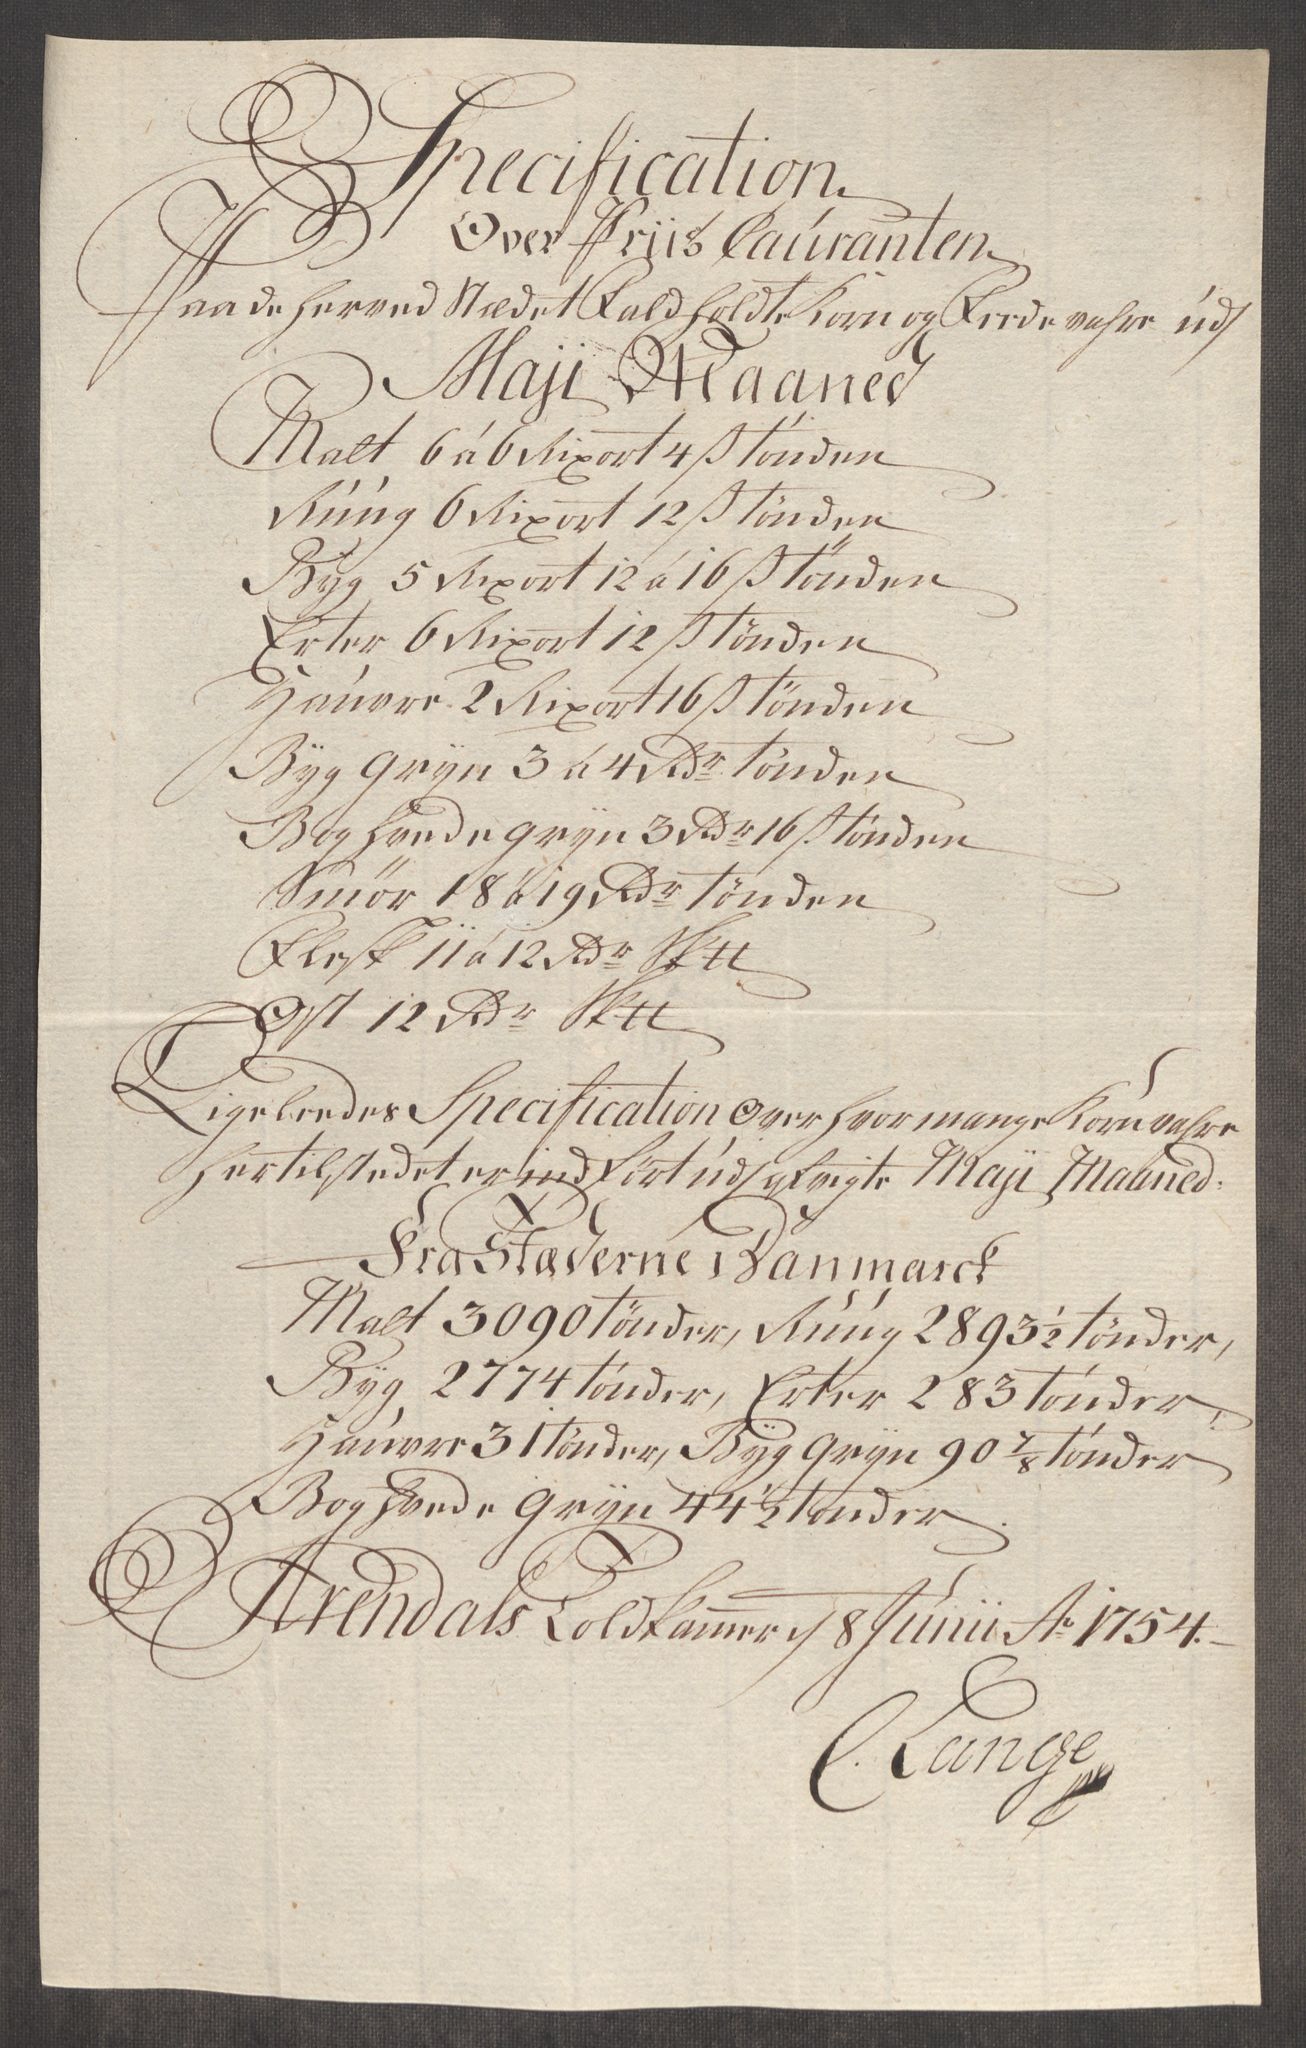 Specification
Over Priis Cauranten
Paa de herved Stædet Fald holdte Korn og Feede vahre udj
Maji Maaned
Malt 6 á 6 Rixort 4 ß tönden
Rúúg 6 Rixort 12 ß tönden
Byg 5 Rixort 12 á 16 ß tönden
Erter 6 Rixort 12 ß tönden
Hauvre 2 Rixort 16 ß tönden
Byg Gryn 3 á 4 Rdr tönden
Boghvede gryn 3 Rdr 16 ß tönden
Smör 18 á 19 Rdr tönden
Flesk 11 á 12 Rdr Sktt
Ost 12 Rdr Sktt
Ligeleedes Specification over hvor mange Korn vahre
hertilstedet er indfört udj Maji Maaned.
Fra Stæderne i Danmarck
Malt 3090 tönder, Rúúg 2893 1/2 tönder,
Byg 2774 tönder, Erter 283 tönder,
Hauvre 31 tönder, Byg Gryn 90 7/8 tönder
Boghvede Gryn 44 1/2 tönder.
Arendals Toldkamer d 8 Junii Ao 1754.
C. Lange